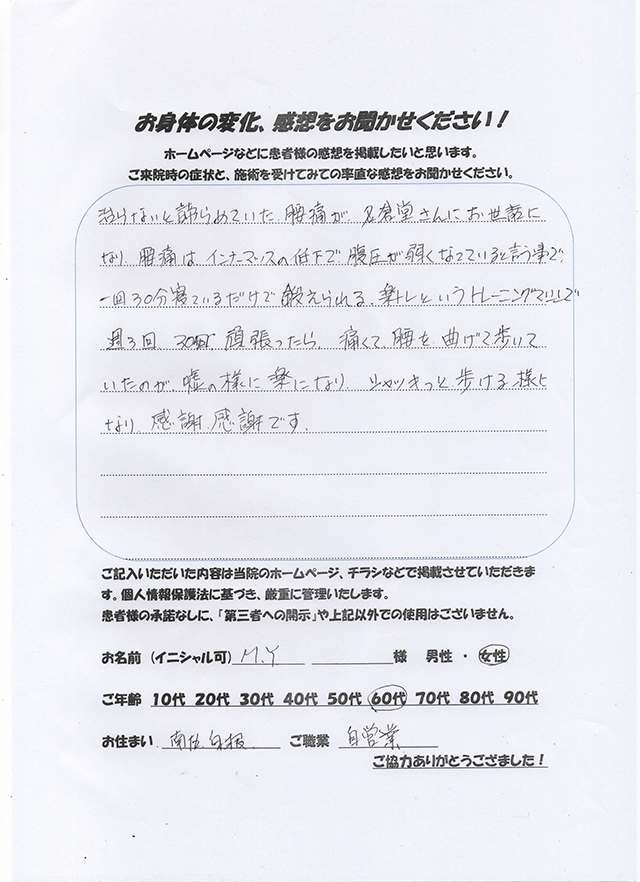 お身体の変化、感想をお聞かせください！
ホームページなどに患者様の感想を掲載したいと思います。
ご来院時の症状と、施術を受けてみての率直な感想をお聞かせください。
治らないと諦らめていた腰痛が、名倉堂さんにお世話に
なり腰痛はインナーマッスルの低下で腹圧が弱くなっていると言う事で、
一回30分寝ているだけで鍛えられる、楽トレというトレーニングマシンで
週3回、頑張ったら、痛くて、腰を曲げて歩いて
いたのが、嘘の様に楽になり シャッキっと歩ける様に
なり 感謝、感謝です。
ご記入いただいた内容は当院のホームページ、チラシなどで掲載させていただきま
す。個人情報保護法に基づき、厳重に管理いたします。
患者様の承諾なしに、「第三者への開示」や上記以外での使用はございません。
お名前（イニシャル可） M.Y 様 男性 ・ 女性
ご年齢 10代 20代 30代 40代 50代 60代 70代 80代 90代
お住まい ご職業 自営業
ご協力ありがとうござました！